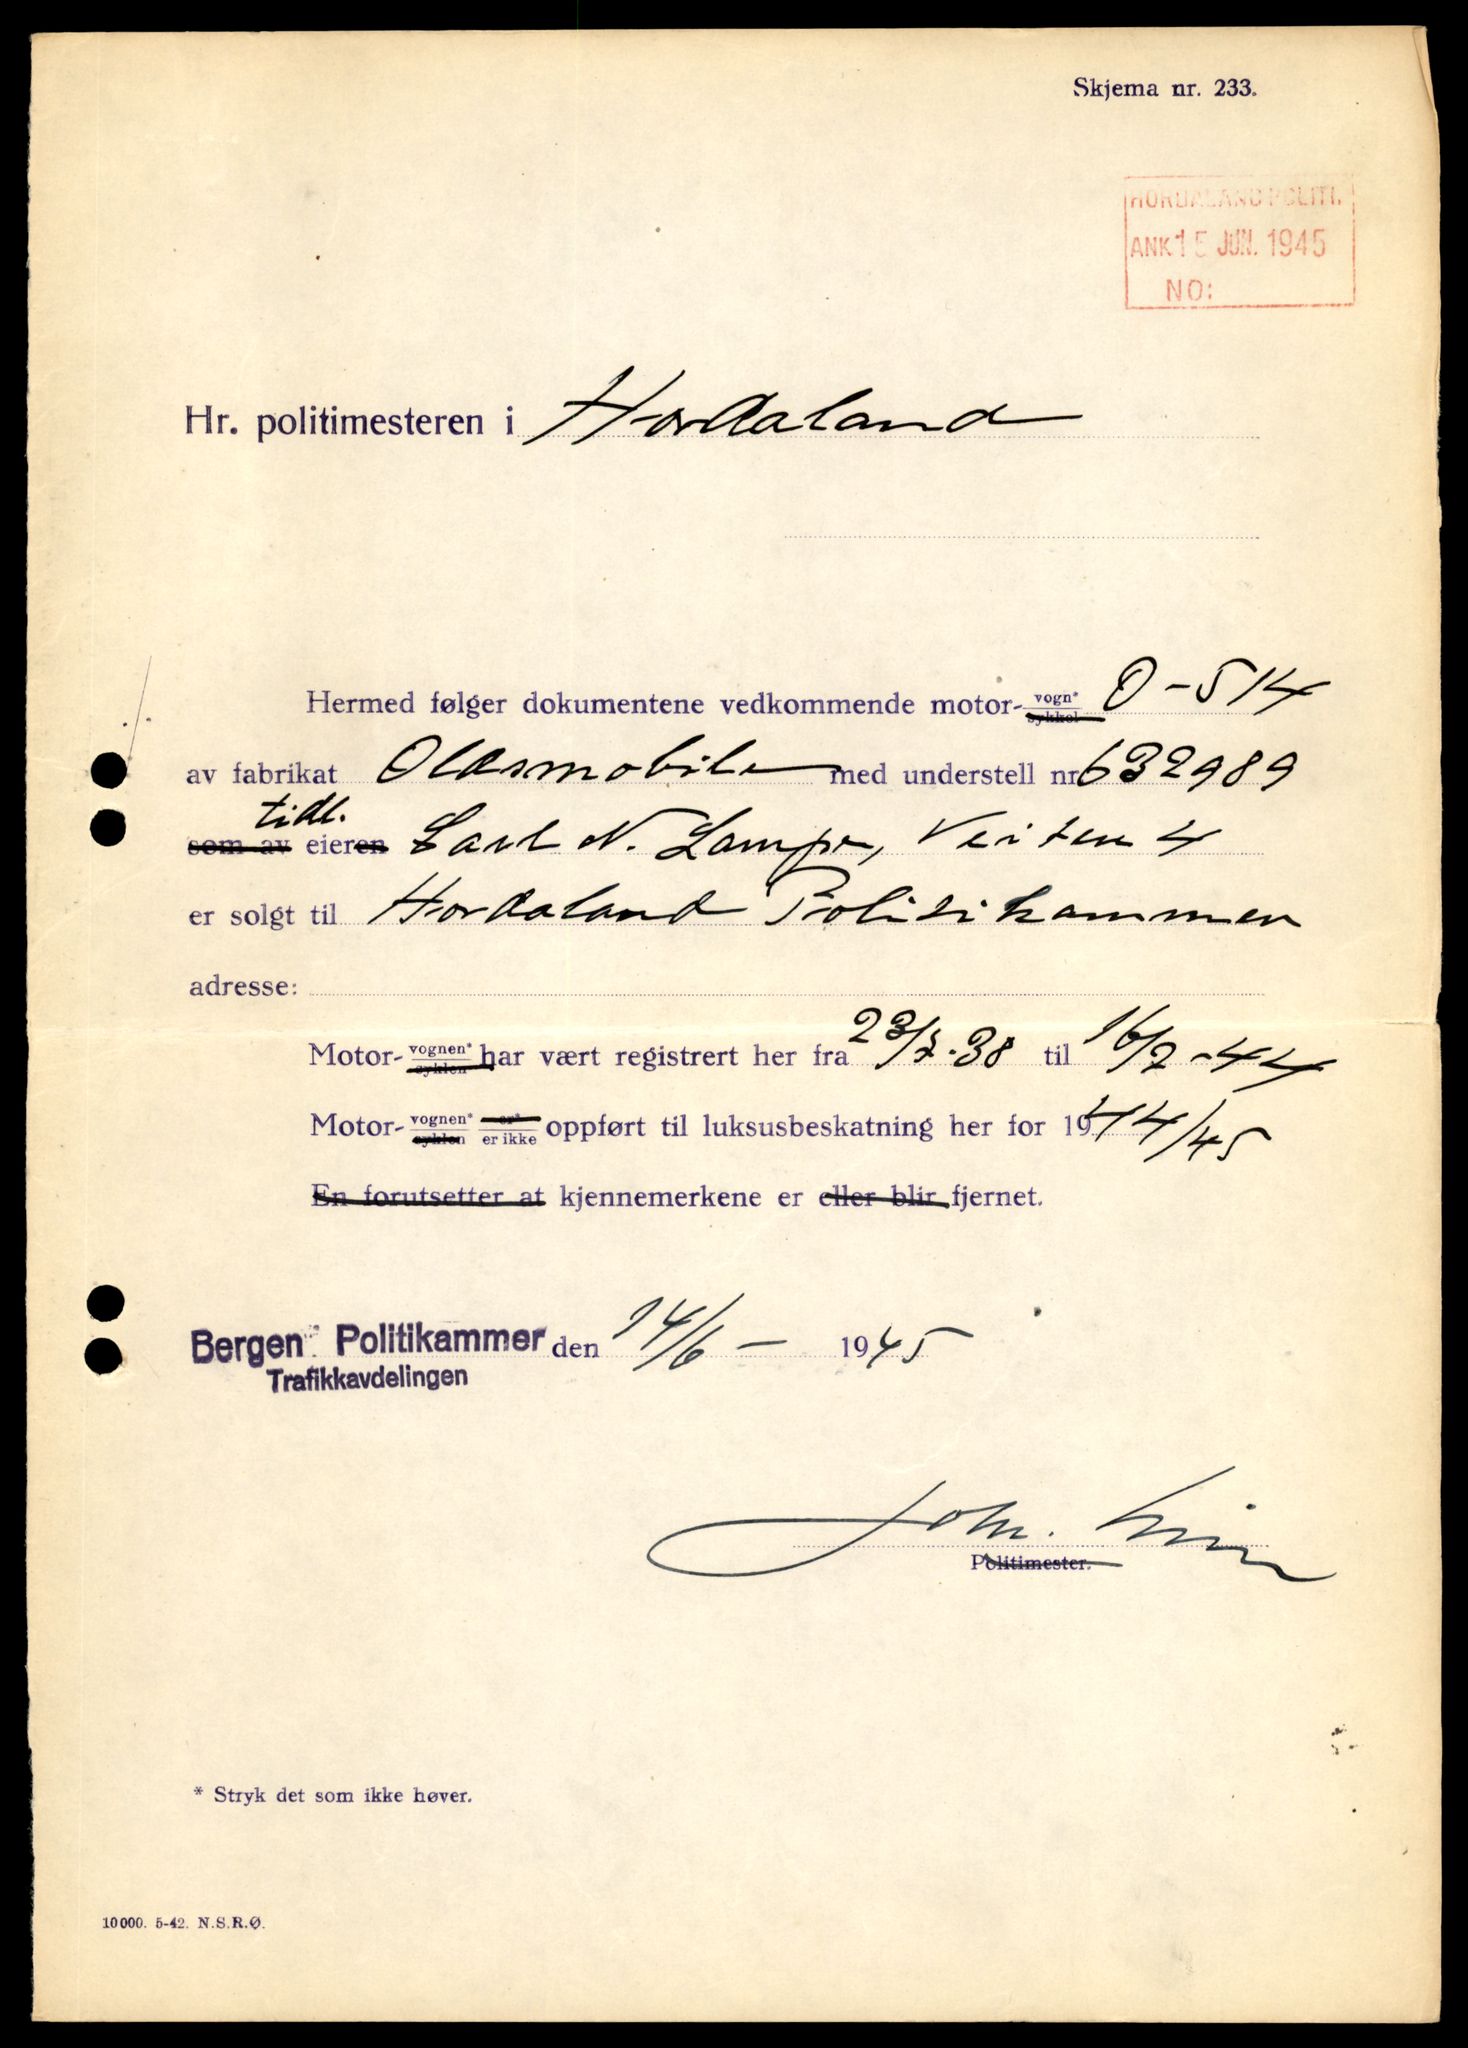 Skjema nr. 233.
HORDALAND POLITI.
ANK 15 JUN. 1945
NO:
Hr. politimesteren i Hordaland
Hermed følger dokumentene vedkommende motor- vogn* sykkel O-514
av fabrikat Oldsmobile med understell nr 632989
tidl.
som av eieren Carl N. Lampe, Veiten 4
er solgt til Hordaland Politikammer
adresse:
Motor- vognen* syklen har vært registrert her fra 23/3-38 til 16/2-44
Motor- vognen* syklen er* er ikke oppført til luksusbeskatning her for 1944/45
En forutsetter at kjennemerkene er eller blir fjernet.
Bergen Politikammer den 14/6- 1945
Trafikkavdelingen
Joh.
Politimester.
* Stryk det som ikke høver.
10000. 5-42. N.S.R.Ø.